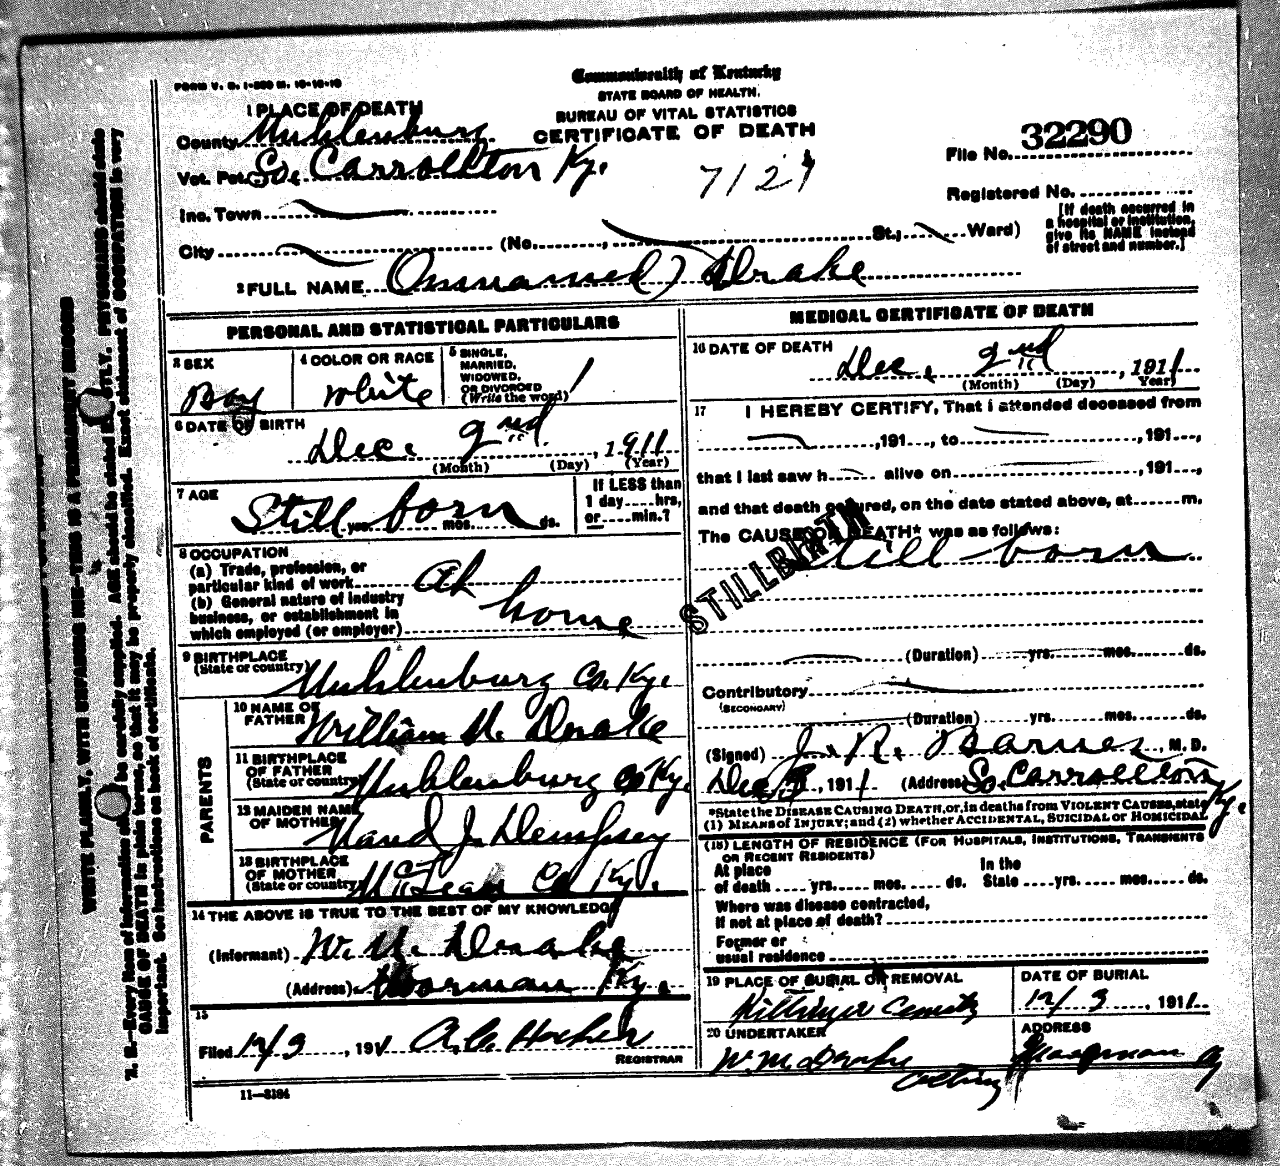 FORM V. S. 1-500 M. 10-10-10
Commonwealth of Kentucky
STATE BOARD OF HEALTH.
BUREAU OF VITAL STATISTICS
CERTIFICATE OF DEATH
1 PLACE OF DEATH
County Muhlenburg
Vot. Pct. So. Carrollton Ky.
7121
File No. 32290
Registered No.
Inc. Town
[If death occurred in
a hospital or institution,
give its NAME instead
of street and number.]
City (No. St.; Ward)
2 FULL NAME (Unnamed) Drake
PERSONAL AND STATISTICAL PARTICULARS
3 SEX
Boy
4 COLOR OR RACE
White
5 SINGLE,
MARRIED,
WIDOWED,
OR DIVORCED
(Write the word)
6 DATE OF BIRTH
Dec. 2nd, 1911
(Month) (Day) (Year)
7 AGE
Still born
yrs. mos. ds.
If LESS than
1 day hrs,
or min.?
8 OCCUPATION
(a) Trade, profession, or
particular kind of work
(b) General nature of industry
business, or establishment in
which employed (or employer)
At home
9 BIRTHPLACE
(State or country)
Muhlenburg Co. Ky.
PARENTS
10 NAME OF
FATHER
William M. Drake
11 BIRTHPLACE
OF FATHER
(State or country)
Muhlenburg Co Ky.
12 MAIDEN NAME
OF MOTHER
Maud J. Dempsey
13 BIRTHPLACE
OF MOTHER
(State or country)
McLean Co Ky.
14 THE ABOVE IS TRUE TO THE BEST OF MY KNOWLEDGE
(Informant) W. M. Drake
(Address) Moorman Ky.
15
Filed 12/3, 1911
REGISTRAR
11—3194
MEDICAL CERTIFICATE OF DEATH
16 DATE OF DEATH
Dec. 2nd, 1911
(Month) (Day) Year)
17 I HEREBY CERTIFY, That I attended deceased from
,191 , to ,191 ,
that I last saw h alive on ,191 ,
and that death occured, on the date stated above, at m.
The CAUSE OF DEATH* was as follows:
Still born
STILLBIRTH
(Duration) yrs. mos. ds.
Contributory
(SECONDARY)
(Duration) yrs. mos. ds.
(Signed) J. R. Barnes, M. D.
Dec 3, 1911 (Address) So. Carrollton Ky.
*State the DISEASE CAUSING DEATH, or, in deaths from VIOLENT CAUSES, state
(1) MEANS OF INJURY; and (2) whether ACCIDENTAL, SUICIDAL or HOMICIDAL
(18) LENGTH OF RESIDENCE (FOR HOSPITALS, INSTITUTIONS, TRANSIENTS
OR RECENT RESIDENTS)
At place In the
of death yrs. mos. ds. State yrs. mos. ds.
Where was disease contracted,
if not at place of death?
Former or
usual residence
19 PLACE OF BURIAL OR REMOVAL
DATE OF BURIAL
12/3, 1911
20 UNDERTAKER
W. M. Drake
acting
ADDRESS
Moorman Ky
WRITE PLAINLY, WITH UNFADING INK—THIS IS A PERMANENT RECORD
N. B.—Every item of information should be carefully supplied. AGE should be stated EXACTLY. PHYSICIANS should state
CAUSE OF DEATH in plain terms, so that it may be properly classified. Exact statement of OCCUPATION is very
important. See instructions on back of certificate.